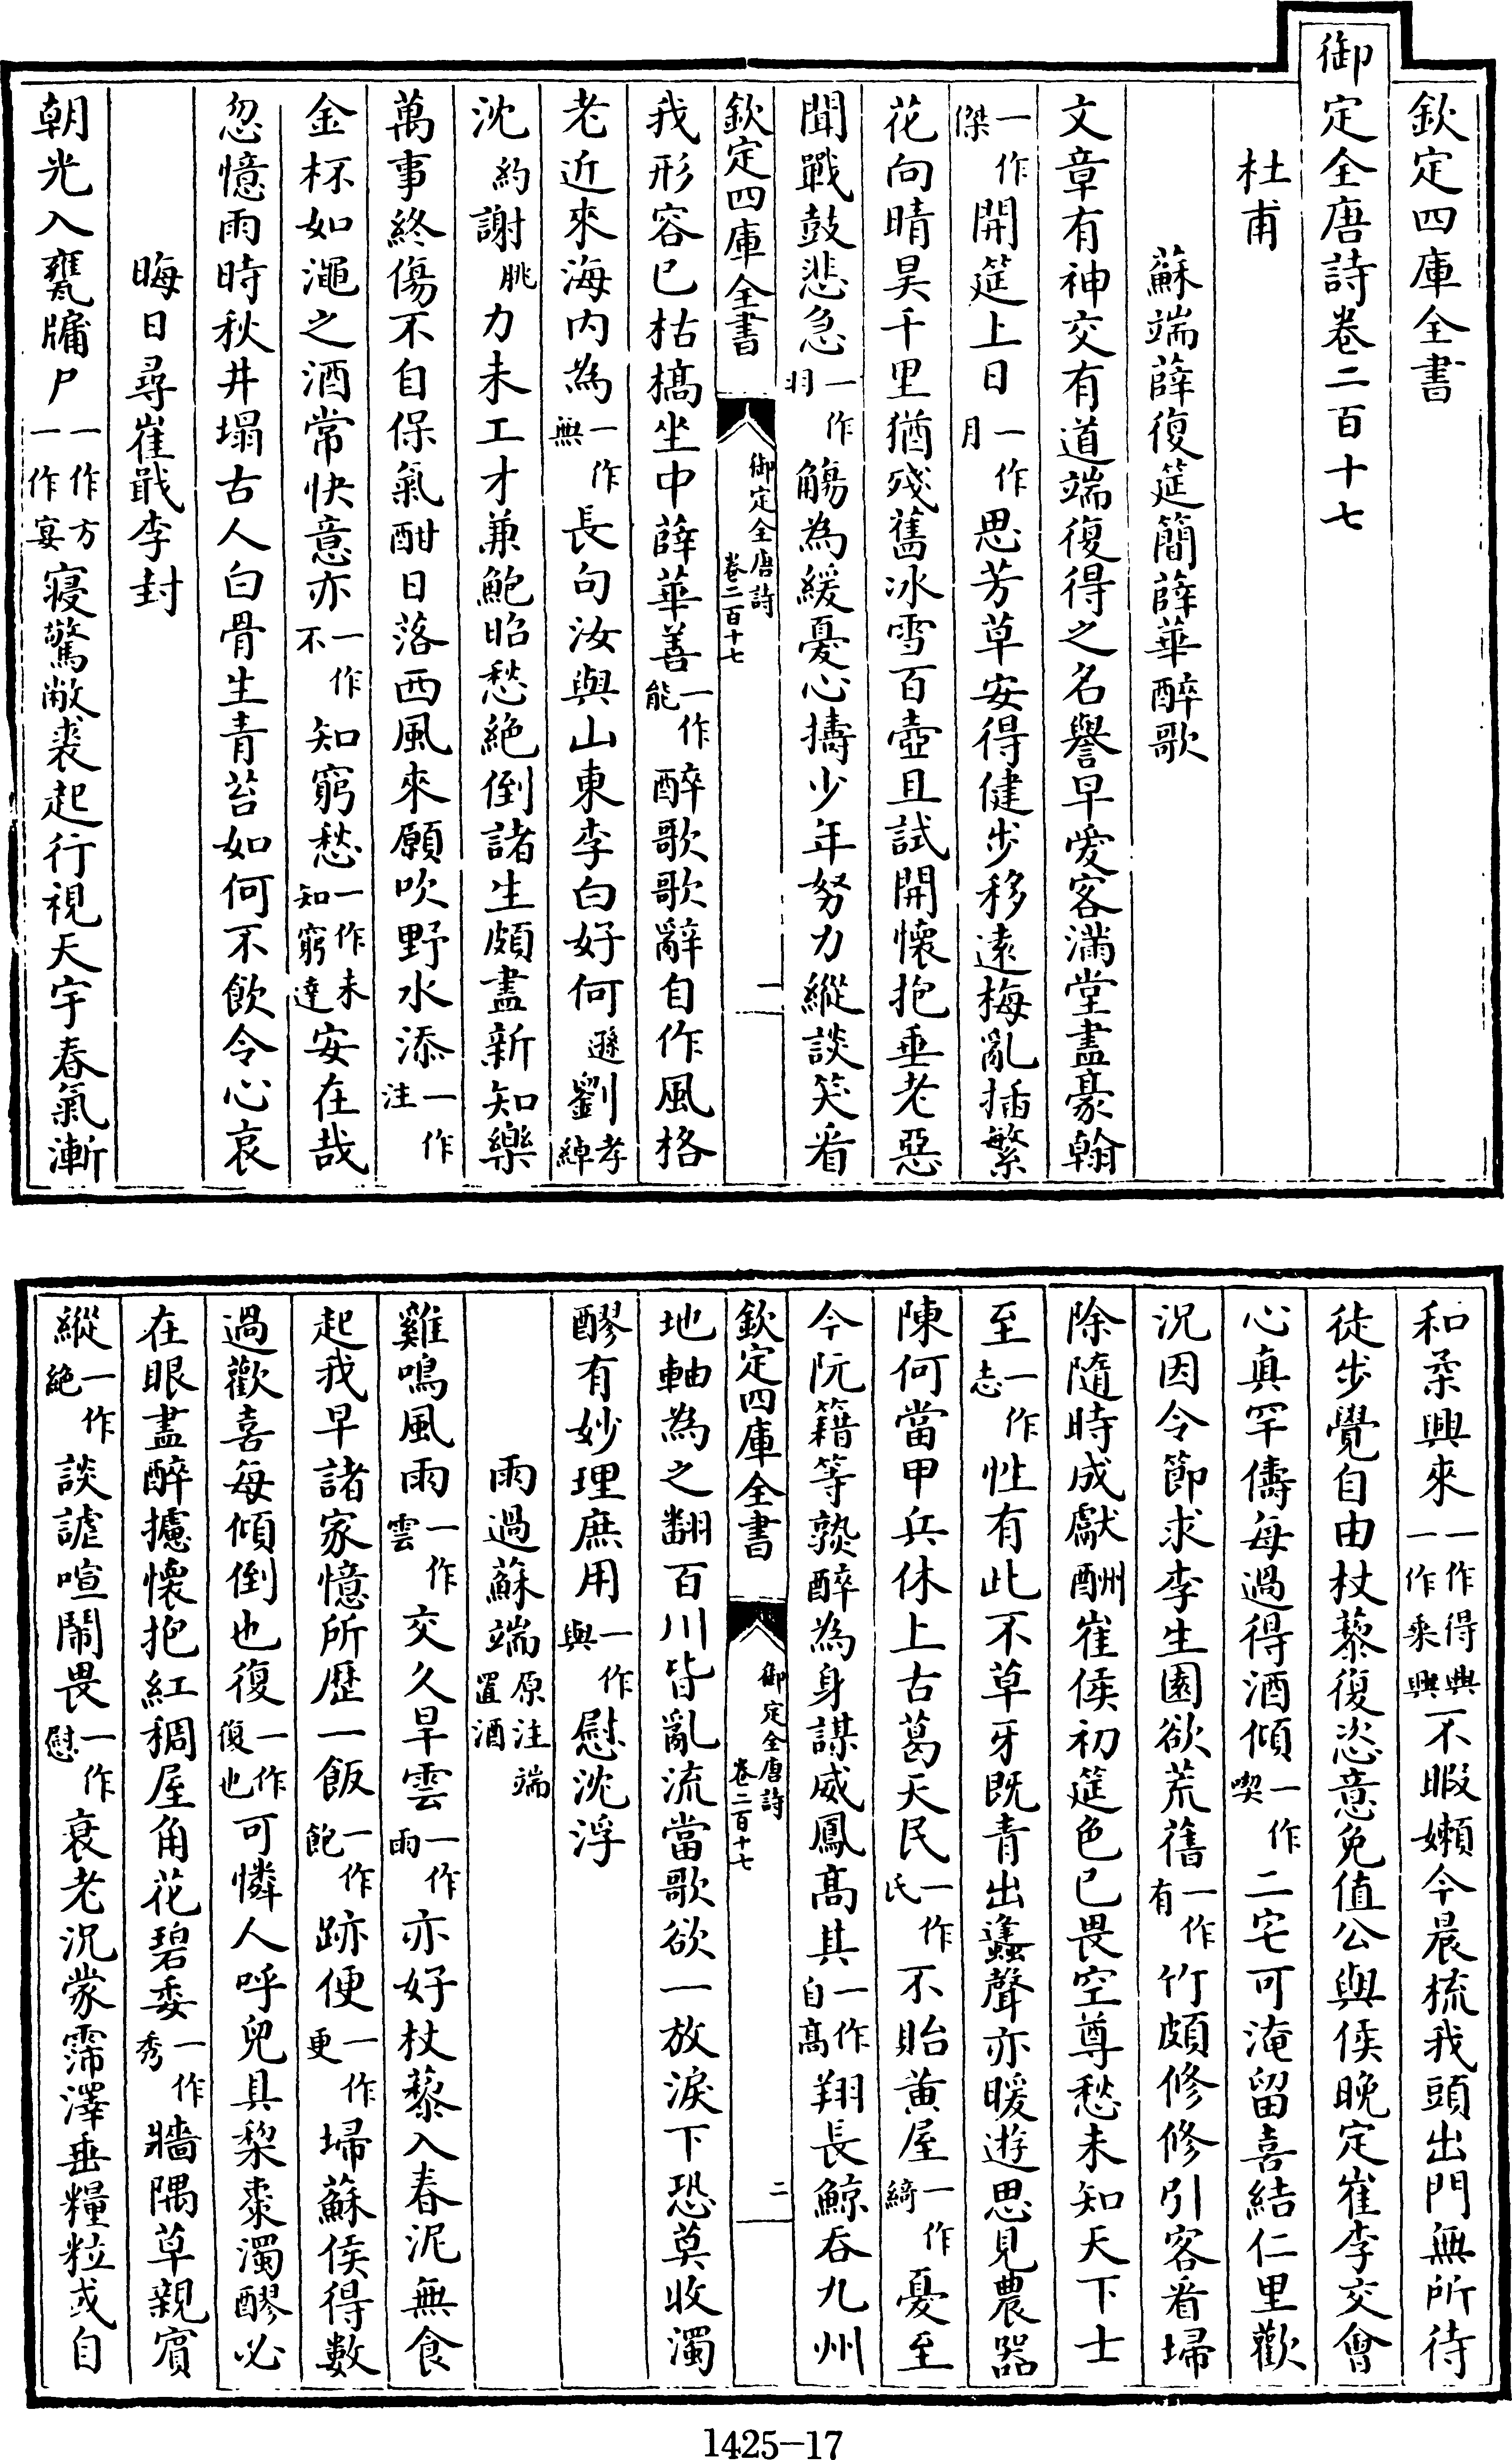 欽定四庫全書
御定全唐詩卷二百十七
杜甫
蘇端薛復筵簡薛華醉歌
文章有神交有道端復得之名譽早愛客滿堂盡豪翰
一作傑開筵上日一作月思芳草安得健步移遠梅亂插繁
花向晴昊千里猶殘舊冰雪百壺且試開懷抱垂老惡
聞戰鼓悲急一作羽觴為緩憂心擣少年努力縱談笑看
欽定四庫全書 御定全唐詩卷二百十七 一
我形容已枯槁坐中薛華善一作能醉歌歌辭自作風格
老近來海内為一作無長句汝與山東李白好何遜劉孝綽
沈約謝朓力未工才兼鮑昭愁絶倒諸生頗盡新知樂
萬事終傷不自保氣酣日落西風來願吹野水添一作注
金杯如澠之酒常快意亦一作不知窮愁一作未知窮達安在哉
忽憶雨時秋井塌古人白骨生青苔如何不飲令心哀
晦日尋崔戢李封
朝光入甕牖尸一作方一作宴寢驚敝裘起行視天宇春氣漸
和柔興來一作得興一作乘興不暇嬾今晨梳我頭出門無所待
徒步覺自由杖藜復恣意免值公與侯晚定崔李交會
心真罕儔每過得酒傾一作喫二宅可淹留喜結仁里歡
況因令節求李生園欲荒舊一作有竹頗修修引客看埽
除隨時成獻酬崔侯初筵色已畏空尊愁未知天下士
至一作志性有此不草牙既青出蠭聲亦暖遊思見農器
陳何當甲兵休上古葛天民一作氏不貽黄屋一作綺憂至
今阮籍等孰醉為身謀威鳳高其一作自高翔長鯨吞九州
欽定四庫全書 御定全唐詩卷二百十七 二
地軸為之翻百川皆亂流當歌欲一放淚下恐莫收濁
醪有妙理庶用一作與慰沈浮
雨過蘇端原注端置酒
雞鳴風雨一作雲交久旱雲一作雨亦好杖藜入春泥無食
起我早諸家憶所歷一飯一作飽跡便一作更埽蘇侯得數
過歡喜每傾倒也復一作復也可憐人呼兒具梨棗濁醪必
在眼盡醉攄懷抱紅稠屋角花碧委一作秀牆隅草親賓
縱一作絶談謔喧鬧畏一作慰衰老況蒙霈澤垂糧粒或自
1425-17